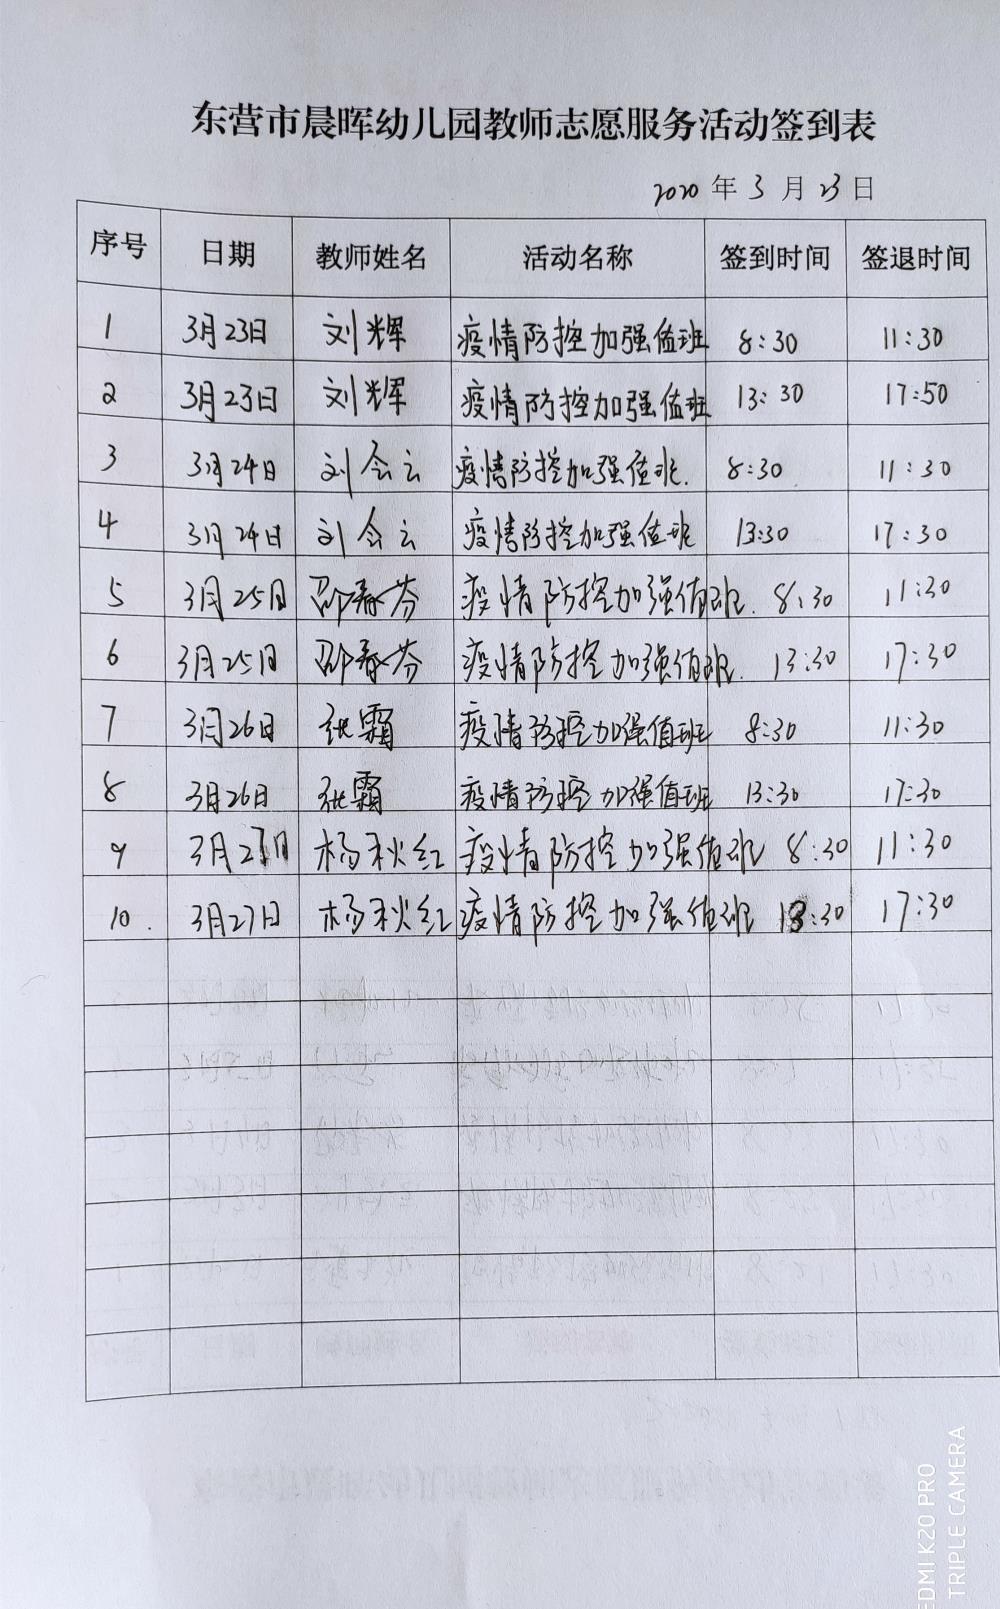 东营市晨晖幼儿园教师志愿服务活动签到表
2020年3月23日
序号 日期 教师姓名 活动名称 签到时间 签退时间
1 3月23日 刘辉 疫情防控加强值班 8:30 11:30
2 3月23日 刘辉 疫情防控加强值班 13:30 17:50
3 3月24日 刘会云 疫情防控加强值班. 8:30 11:30
4 3月24日 刘会云 疫情防控加强值班 13:30 17:30
5 3月25日 邵春芬 疫情防控加强值班. 8:30 11:30
6 3月25日 邵春芬 疫情防控加强值班. 13:30 17:30
7 3月26日 张霜 疫情防控加强值班 8:30 11:30
8 3月26日 张霜 疫情防控加强值班 13:30 17:30
9 3月27日 杨秋红 疫情防控加强值班 8:30 11:30
10. 3月27日 杨秋红 疫情防控加强值班 13:30 17:30
EDMI K20 PRO
TRIPLE CAMERA